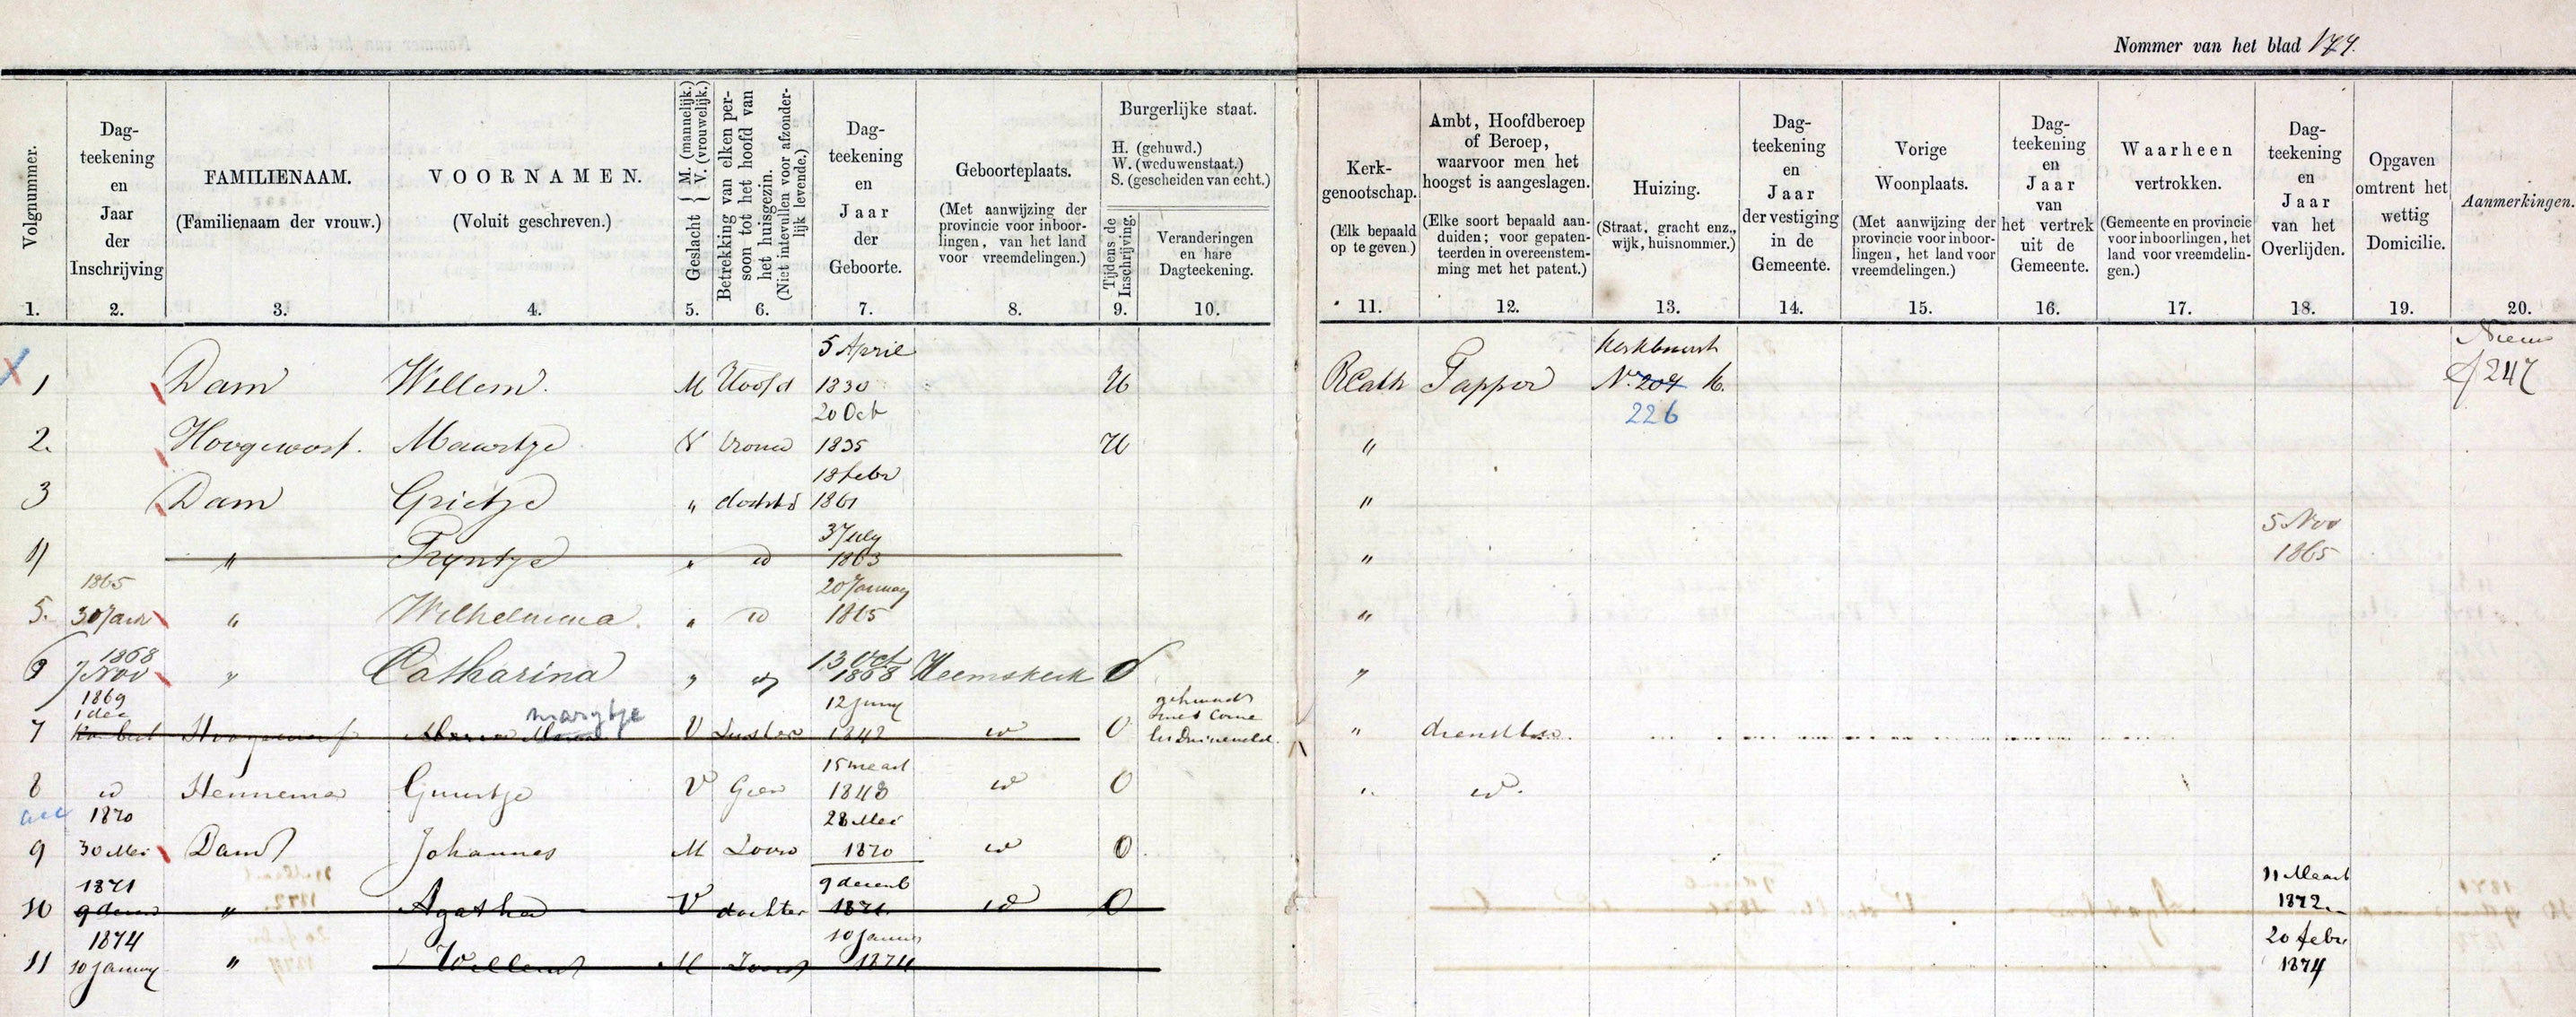 Nommer van het blad 174.
Volgnummer.
Dag-
teekening
en
Jaar
der
Inschrijving
FAMILIENAAM.
(Familienaam der vrouw.)
VOORNAMEN.
(Voluit geschreven.)
Geslacht { M. (mannelijk.) V. (vrouwelijk.)
Betrekking van elken per-
soon tot het hoofd van
het huisgezin.
(Niet intevullen voor afzonder-
lijk levende.)
Dag-
teekening
en
Jaar
der
Geboorte.
Geboorteplaats.
(Met aanwijzing der
provincie voor inboor-
lingen, van het land
voor vreemdelingen.)
Burgerlijke staat.
H. (gehuwd.)
W. (weduwenstaat.)
S. (gescheiden van echt.)
Tijdens de
Inschrijving.
Veranderingen
en hare
Dagteekening.
Kerk-
genootschap.
(Elk bepaald
op te geven.)
Ambt, Hoofdberoep
of Beroep,
waarvoor men het
hoogst is aangeslagen.
(Elke soort bepaald aan-
duiden; voor gepaten-
teerden in overeenstem-
ming met het patent.)
Huizing.
(Straat, gracht enz.,
wijk, huisnommer.)
Dag-
teekening
en
Jaar
der vestiging
in de
Gemeente.
Vorige
Woonplaats.
(Met aanwijzing der
provincie voor inboor-
lingen, het land voor
vreemdelingen.)
Dag-
teekening
en
Jaar
van
het vertrek
uit de
Gemeente.
Waarheen
vertrokken.
(Gemeente en provincie
voor inboorlingen, het
land voor vreemdelin-
gen.)
Dag-
teekening
en
Jaar
van het
Overlijden.
Opgaven
omtrent het
wettig
Domicilie.
Aanmerkingen.
1. 2. 3. 4. 5. 6. 7. 8. 9. 10. 11. 12. 13. 14. 15. 16. 17. 18. 19. 20.
5 April Kerkbuurt Nieuw
1 Dam Willem. M Hoofd 1830 H RCath Tapper No. 207 K. f 247
20 Oct 226
2. Hoogewerf. Maartje V Vrouw 1835 H "
18 Febr
3 Dam Grietje " dochter 1861 "
3 July 5 Nov
4 " Tryntje " id 1863 " 1865
1865 20 January
5. 30 Jan " Wilhelmina. " id 1865 "
1868 13 Oct
6 7 Nov " Catharina " id 1868 Heemskerk O "
1869 12 Juny gehuwd
1 dec marytje met Corne
7 Hoogewerf Maria V Zuster 1842 id O lis Duineveld. " dienstbo.
15 maart
8 id Hennema Guurtje V Geen 1848 id O " id.
1870 28 Mei
9 30 Mei Dam Johannes M Zoon 1870 id O
1871 9 decemb 11 Maart
10 9 decem " Agatha V dochter 1871. id O 1872.
1874 10 Januar 20 febr
11 10 January " Willem M Zoon 1874 1874